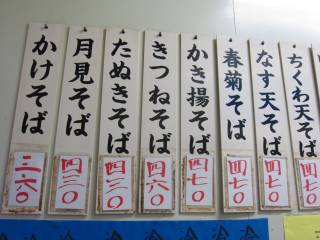 ちくわ天そば
四七〇
なす天そば
四七〇
春菊そば
四七〇
かき揚そば
四七〇
きつねそば
四六〇
たぬきそば
四三〇
月見そば
四三〇
かけそば